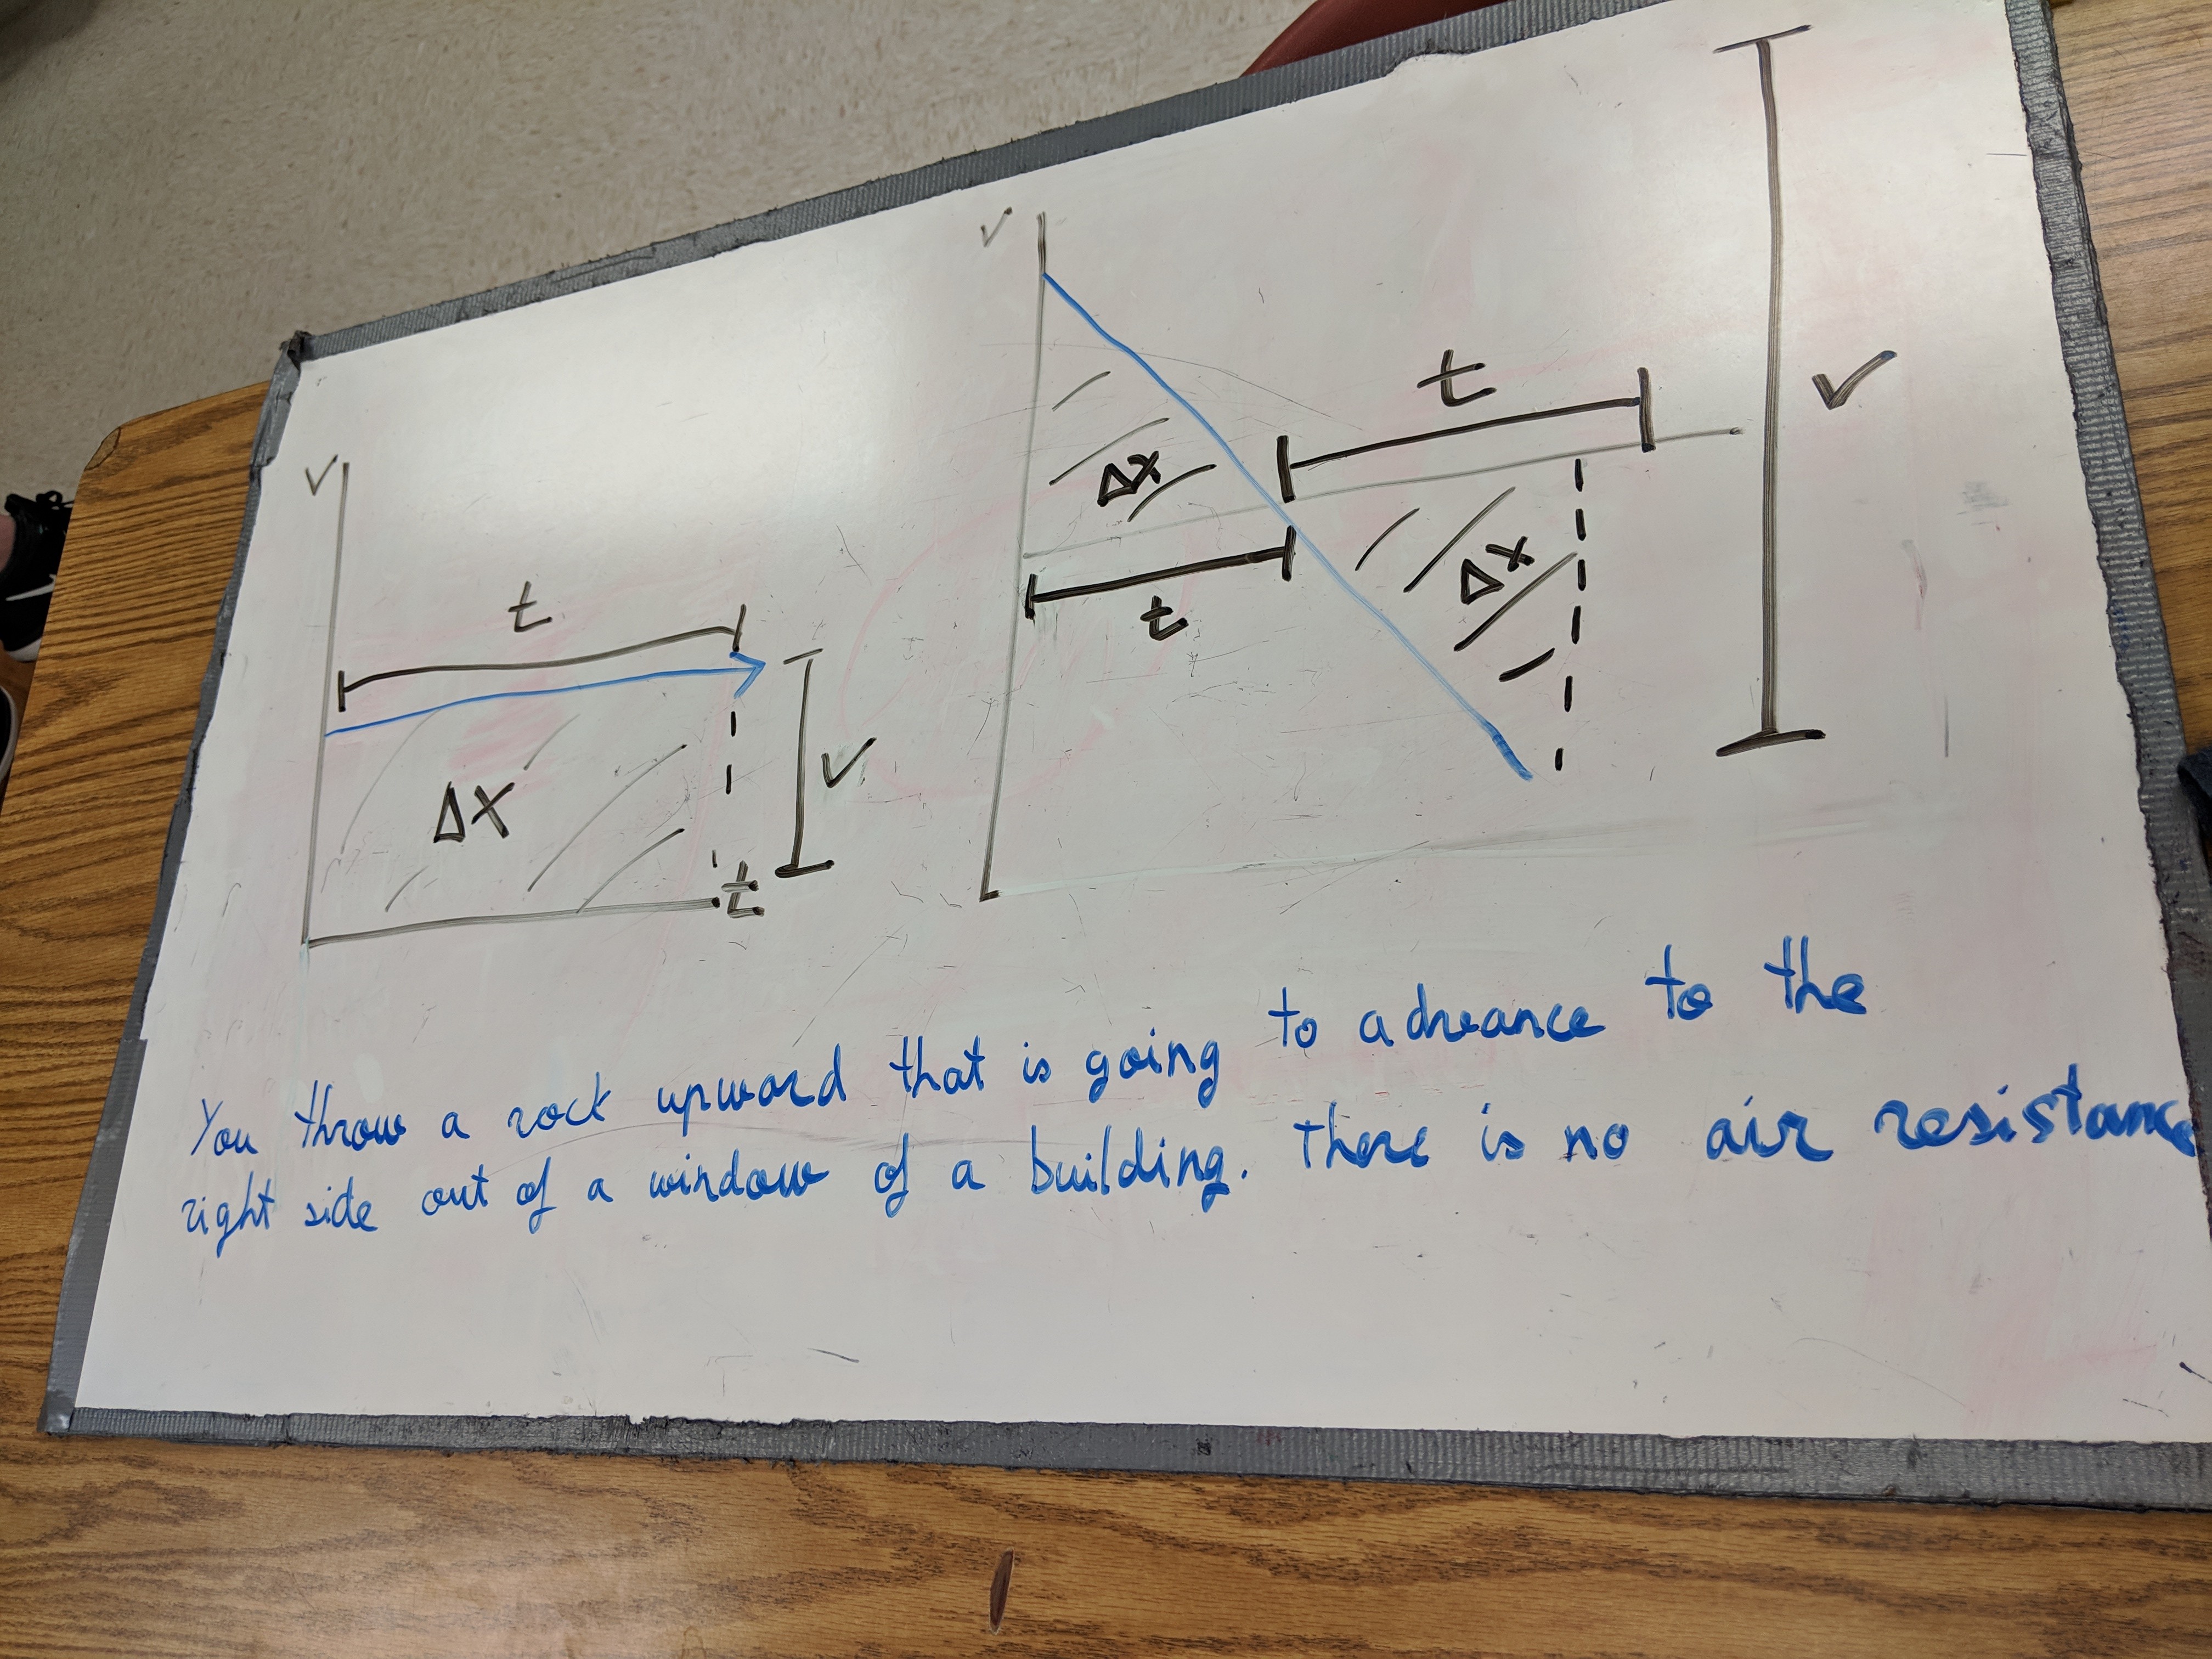 v
t
Δx
v
t
v
Δx
t
t
Δx
v
You throw a rock upward that is going to advance to the
right side out of a window of a building. There is no air resistance